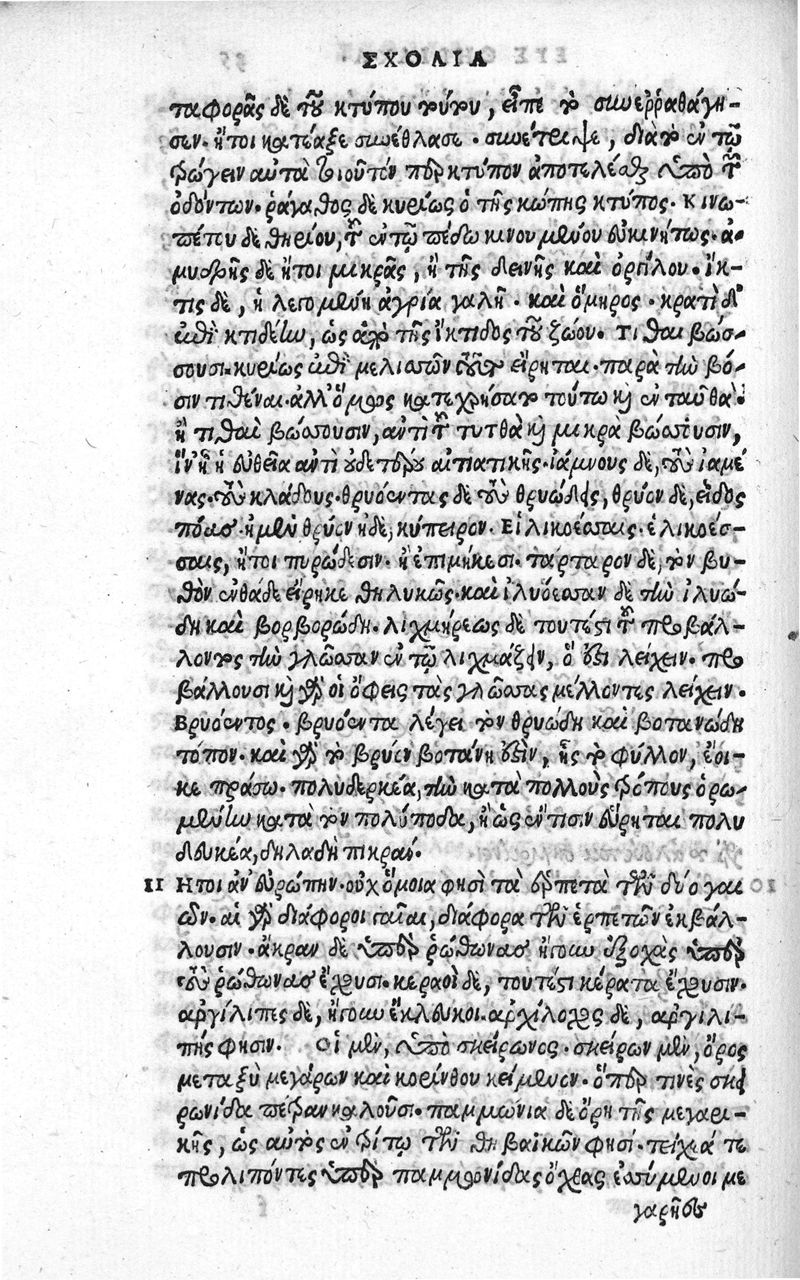 ΣΧΟΛΙΑ
ταφορᾶς δὲ τοῦ κτύπου τούτου, εἶπε τὸ συνερῤραθάγη-
σεν. ἤτοι κατέαξε συνέθλασε. συνέτριψε, διὰ τὸ ἐν τῷ
τρώγειν αὐτὰ τοιοῦτόν περ κτύπον ἀποτελεῖσθαι ὑπὸ τῶν
ὀδόντων. ῥάγαθος δὲ κυρίως ὁ τῆς κώπης κτύπος. Κινω-
πέτου δὲ θηρίου, τοῦ ἐν τῷ πέδῳ κινουμένου εὐκινήτως. ἀ-
μυδρῆς δὲ ἤτοι μικρᾶς, ἢ τῆς δεινῆς καὶ ὀργίλου. ἴκ-
τις δὲ, ἡ λεγομένη ἀγρία γαλῆ. καὶ ὅμηρος. κρατὶ δ'
ἐπὶ κτιδέην, ὡς ἀπὸ τῆς ἴκτιδος τοῦ ζώου. Τιθαιβώσ-
σουσι. κυρίως ἐπὶ μελισσῶν τοῦτο εἴρηται. παρὰ τὴν βό-
σιν τιθέναι. ἀλλ' ὅμως κατεχρήσατο τούτῳ καὶ ἐνταῦθα.
ἢ τιθαιβώσσουσιν, ἀντὶ τοῦ τυτθὰ καὶ μικρὰ βώσουσιν,
ἵν' ᾖ ἡ εὐθεῖα ἀντὶ οὐδετέρου αἰτιατικῆς. ἰάμνους δὲ, τοὺς ἰαμέ-
νας. τοὺς κλάδους. θρυόεντας δὲ τοὺς θρυώδεις, θρύον δὲ, εἶδος
πόας. ἠμὲν θρύον ἠδὲ, κύπειρον. Εἱλικοέσσαις. ἑλικοέσ-
σαις, ἤτοι πυρώδεσιν. ἢ ἐπιμήκεσι. τάρταρον δὲ, τὸν βυ-
θὸν ἐνθάδε εἴρηκε θηλυκῶς. καὶ ἰλυόεσσαν δὲ τὴν ἰλυώ-
δη καὶ βορβορώδη. λιχμήρεως δὲ τουτέστι τοῦ προβάλ-
λοντος τὴν γλῶσσαν ἐν τῷ λιχμάζειν, ὅ ἐστι λείχειν. προ
βάλλουσι καὶ γὰρ οἱ ὄφεις τὰς γλώσσας μέλλοντες λείχειν.
Βρυόεντος. βρυόεντα λέγει τὸν θρυώδη καὶ βοτανώδη
τόπον. καὶ γὰρ τὸ βρύον βοτάνη ἐστὶν, ἧς τὸ φύλλον, ἔοι-
κε πράσω. πολυδερκέα, τὴν κατὰ πολλοὺς τρόπους ὁρω-
μένην κατὰ τὸν πολύποδα, ἢ ὡς ἔν τισιν εὕρηται πολυ
δευκέα, δηλαδὴ πικράν.
11 Ητοι ἀν' εὐρώπην. οὐχ ὅμοια φησὶ τὰ ἑρπετὰ τῶν δύο γαι
ῶν. αἱ γὰρ διάφοροι γαῖαι, διάφορα τῶν ἑρπετῶν ἐκβάλ-
λουσιν. ἄκραν δὲ ὑπὲρ ῥώθωνας ἤγουν ἐξοχὰς ὑπὲρ
τοὺς ῥώθωνας ἔχουσι. κεραοὶ δὲ, τουτέστι κέρατα ἔχουσιν.
ἀργίλιπες δὲ, ἤγουν ἔκλευκοι. ἀρχίλοχος δὲ, ἀργιλι-
πής φησιν. Οἱ μὲν, ὑπὸ σκείρωνος. σκείρων μὲν, ὄρος
μεταξὺ μεγάρων καὶ κορίνθου κείμενον. ὅπερ τινὲς σκι
ρωνίδα πέτραν καλοῦσι. παμμώνια δὲ ὄρη τῆς μεγαρι-
κῆς, ὡς αὐτὸς ἐν τρίτῳ τῶν θηβαϊκῶν φησί. τειχιά τε
προλιπόντες ὑπὲρ παμμονίδας ὄχθας ἐσσύμενοι με
γαρῆος